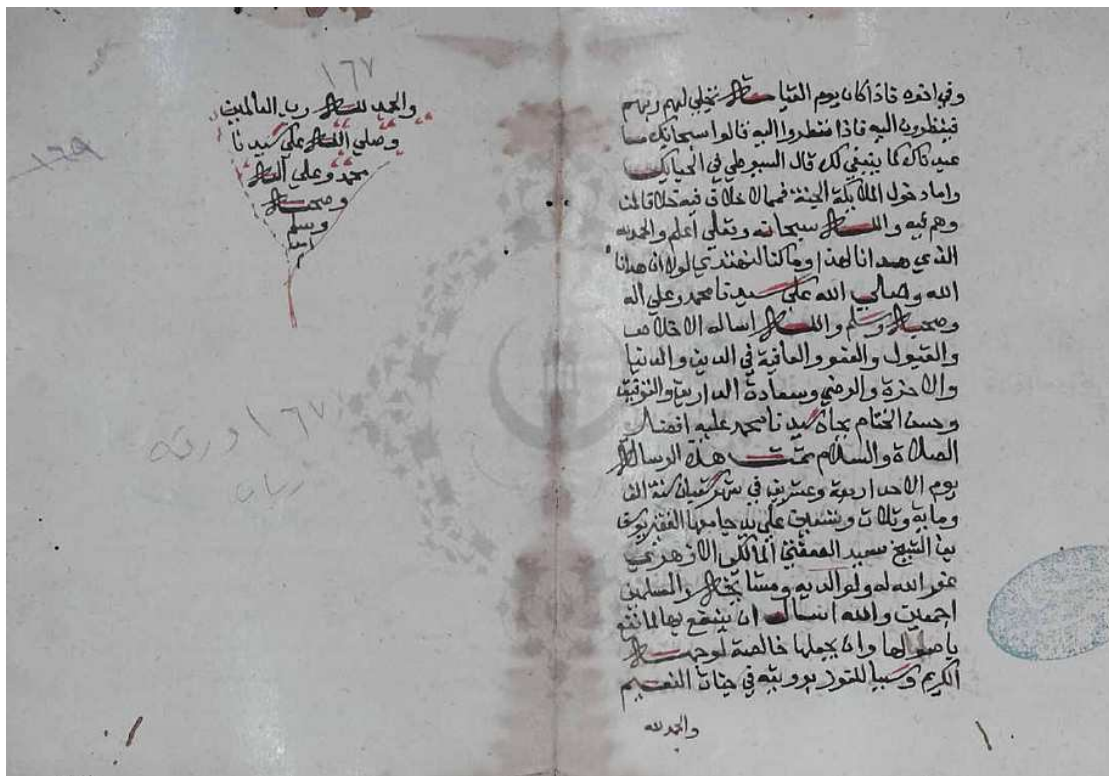 وفي اخره فاذا كان يوم القيامة تجلي لهم ربهم
فينظرون اليه فاذا نظروا اليه قالوا سبحانك ما
عبدناك كما ينبغي لك قال السيوطي في الحبايك
واما دخول الملايكة الجنة فمما لا خلاف فيه
وهم فيه والله سبحانه وتعلي اعلم والحمد لله
الذي هدانا لهذا وما كنا لنهتدي لولا ان هدانا
الله وصلي الله علي سيدنا محمد وعلي اله
وصحبه وسلم والله اساله الاخلاص
والقبول والعفو والعافية في الدين والدنيا
والاخرة والرضي وسعادة الدارين والتوفيق
وحسن الختام بجاه سيدنا محمد عليه افضل
الصلاة والسلام تمت هذه الرسالة
يوم الاحد اربعة وعشرين في شهر شعبان سنة الف
وماية وثلاث وستين علي يد جامعها الفقير يوسف
بن الشيخ سعيد الصفتي المالكي الازهري
غفر الله له ولوالديه ومشايخه والمسلمين
اجمعين والله اسال ان ينفع بها كما نفع
باصولها وان يجعلها خالصة لوجهه
الكريم وسببا للفوز برويته في جنات النعيم
والحمد لله
١٦٧
والحمد لله رب العالمين
وصلي الله علي سيدنا
محمد وعلي آله
وصحبه
وسلم
امين
م
١٦٩
١٦٧ ورقة